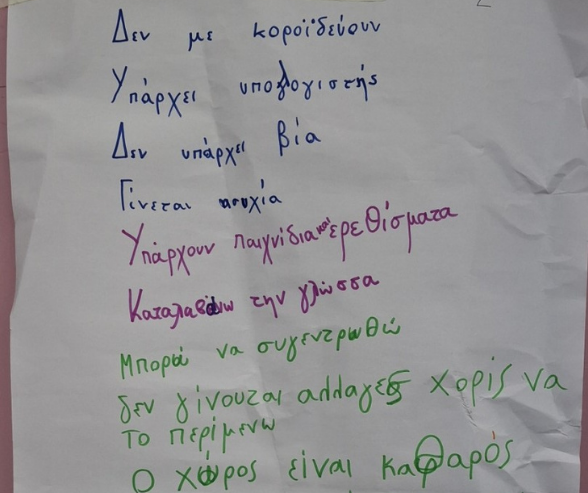 Δεν με κοροϊδεύουν
Υπάρχει υπολογιστής
Δεν υπάρχει βία
Γίνεται ησυχία
Υπάρχουν παιχνίδια και ερεθίσματα
Καταλαβαίνω την γλώσσα
Μπορώ να συγεντρωθώ
δεν γίνουται αλλαγές χορίς να
το περίμενω
Ο χώρος είναι καθαρός